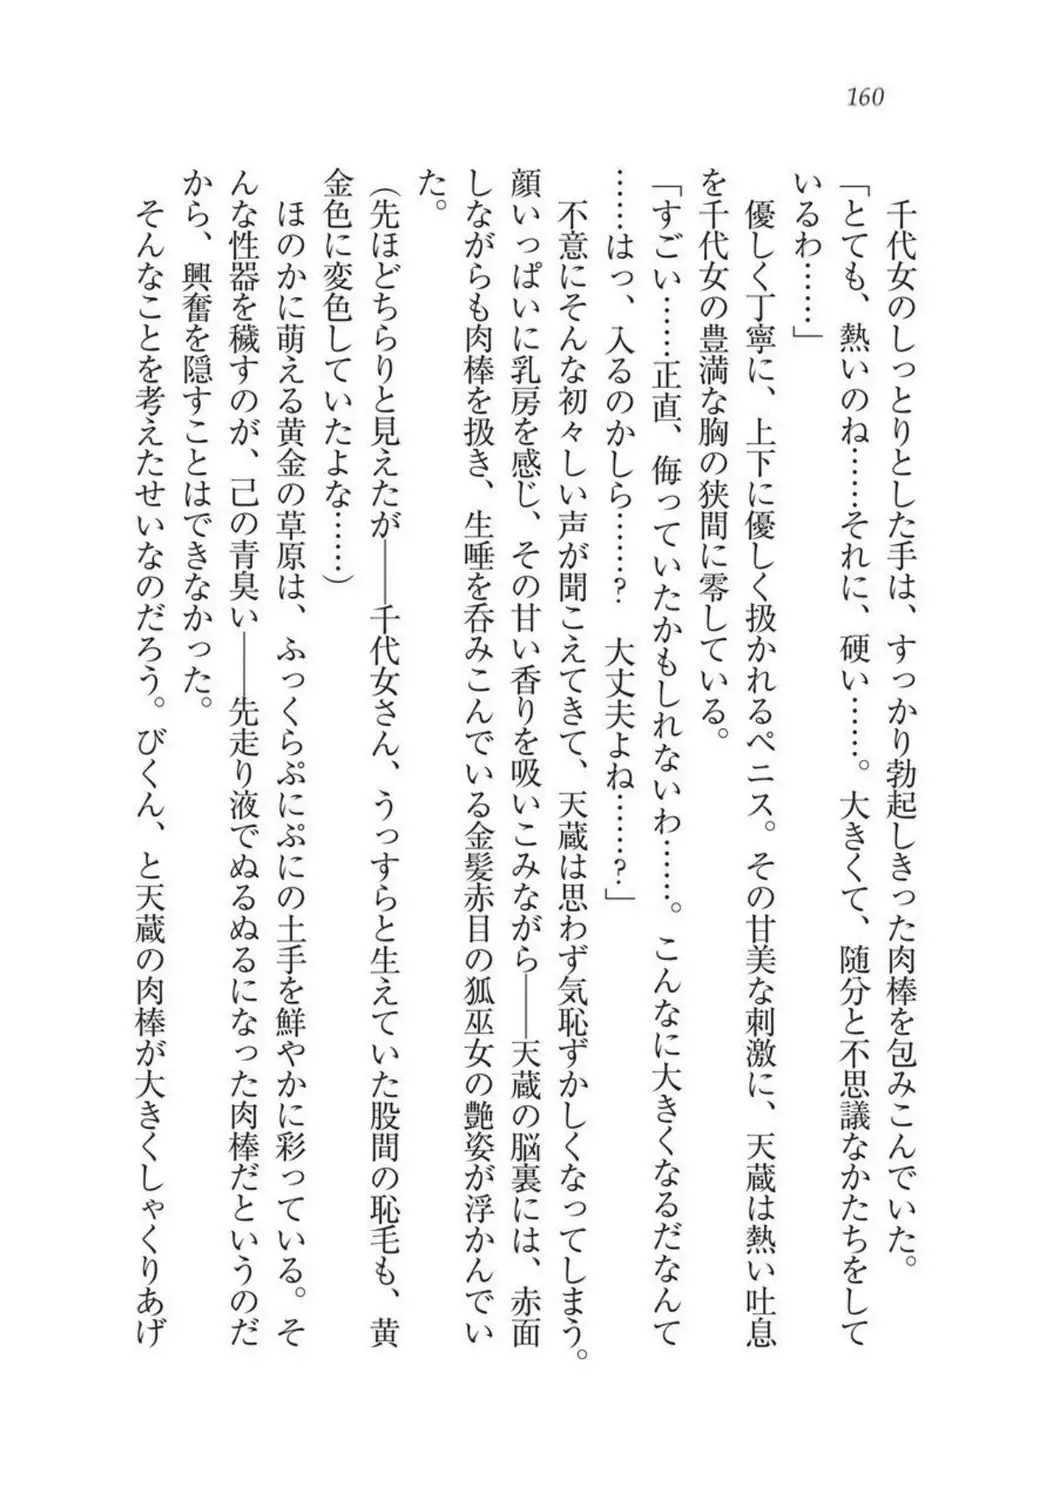 160
千代女のしっとりとした手は、すっかり勃起しきった肉棒を包みこんでいた。
「とても、熱いのね……それに、硬い……。大きくて、随分と不思議なかたちをして
いるわ……」
優しく丁寧に、上下に優しく扱かれるペニス。その甘美な刺激に、天蔵は熱い吐息
を千代女の豊満な胸の狭間に零している。
「すごい……正直、侮っていたかもしれないわ……。こんなに大きくなるだなんて
……はっ、入るのかしら……？　大丈夫よね……？」
不意にそんな初々しい声が聞こえてきて、天蔵は思わず気恥ずかしくなってしまう。
顔いっぱいに乳房を感じ、その甘い香りを吸いこみながら――天蔵の脳裏には、赤面
しながらも肉棒を扱き、生唾を呑みこんでいる金髪赤目の狐巫女の艶姿が浮かんでい
た。
（先ほどちらりと見えたが――千代女さん、うっすらと生えていた股間の恥毛も、黄
金色に変色していたよな……）
ほのかに萌える黄金の草原は、ふっくらぷにぷにの土手を鮮やかに彩っている。そ
んな性器を穢すのが、己の青臭い――先走り液でぬるぬるになった肉棒だというのだ
から、興奮を隠すことはできなかった。
そんなことを考えたせいなのだろう。びくん、と天蔵の肉棒が大きくしゃくりあげ